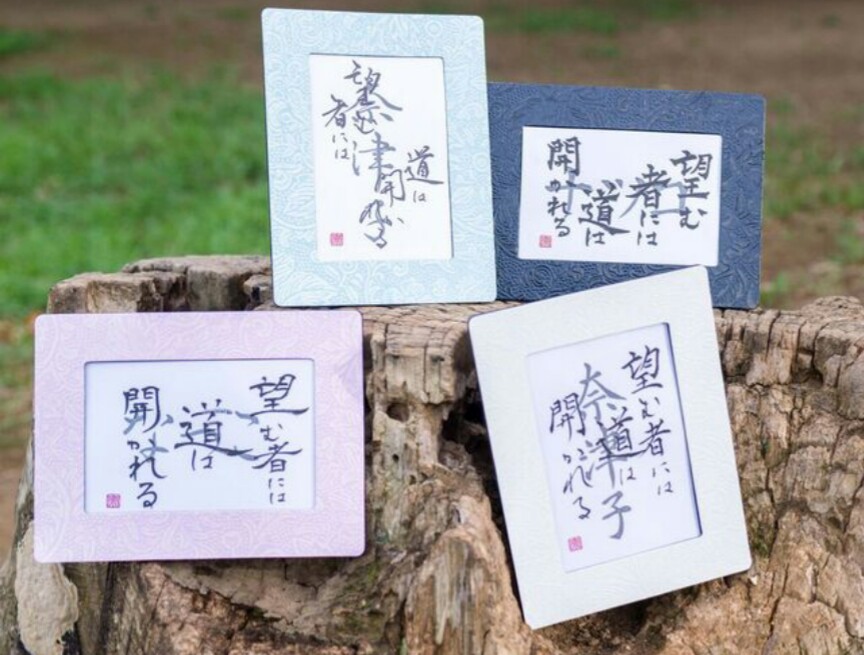 望む
者には
奈津
道は
開かれる
望む
者には
道は
開かれる
望む
者には
道は
開かれる
望む者には
道は
開かれる
奈津子